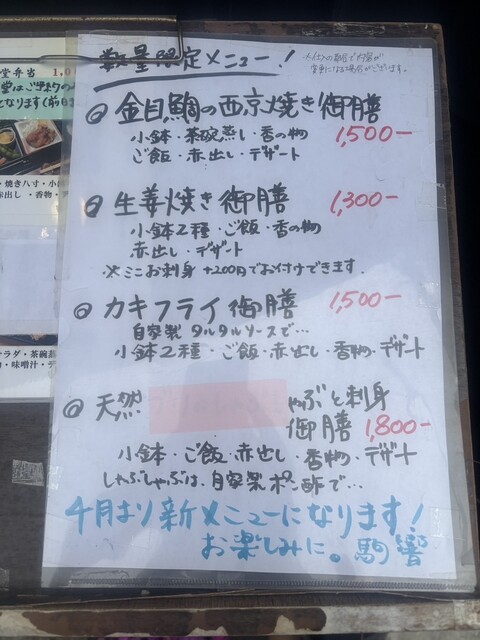 数量限定メニュー!
※仕入の都合で内容が
変更になる場合がございます。
金目鯛の西京焼き御膳
1,500-
小鉢・茶碗蒸し・香の物
ご飯・赤出し・デザート
生姜焼き御膳
1,300-
小鉢2種・ご飯・香の物
赤出し・デザート
※ミニお刺身 +200円でお付けできます。
カキフライ御膳
1,500-
自家製タルタルソースで…
小鉢2種・ご飯・赤出し・香物・デザート
天然 しゃぶと刺身
御膳 1,800-
小鉢・ご飯・赤出し・香物・デザート
しゃぶしゃぶは、自家製ポン酢で…
4月より新メニューになります!
お楽しみに。駒響
堂弁当
・焼き八寸・小
赤出し・香物・デ
サラダ・茶碗蒸
・味噌汁・デ